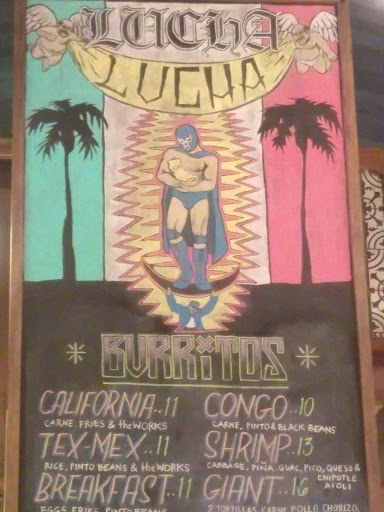 LUCHA
LUCHA
BURRITOS
CALIFORNIA..11
CARNE FRIES & theWORKS
TEX-MEX..11
RICE, PINTO BEANS & theWORKS
BREAKFAST..11
EGGS, FRIES, PINTO BEANS
CONGO..10
CARNE, PINTO & BLACK BEANS
SHRIMP..13
CABBAGE, PIÑA, GUAC, PICO, QUESO &
CHIPOTLE
AIOLI
GIANT..16
2 TORTILLAS, CARNE, POLLO, CHORIZO,